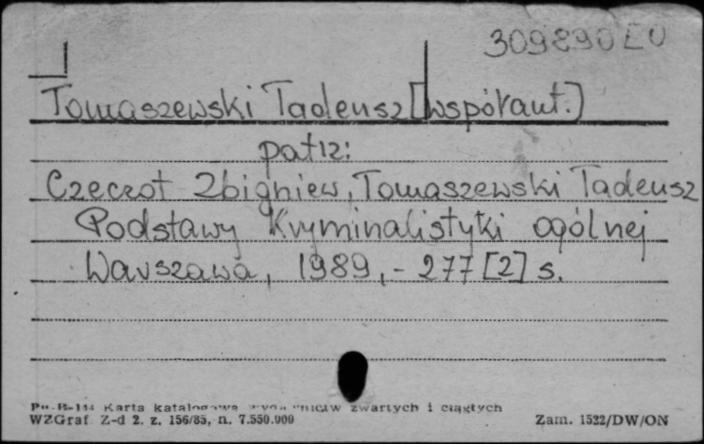 309890 EU
Tomaszewski Tadeusz [współaut.]
patrz:
Czeczot Zbigniew, Tomaszewski Tadeusz
Podstawy Kryminalistyki ogólnej
Warszawa, 1989, - 277 [2] s.
Pu-B-144 Karta katalogowa wydawnictw zwartych i ciągłych
WZGraf Z-d 2. z. 156/85, n. 7.550.000 Zam. 1522/DW/ON